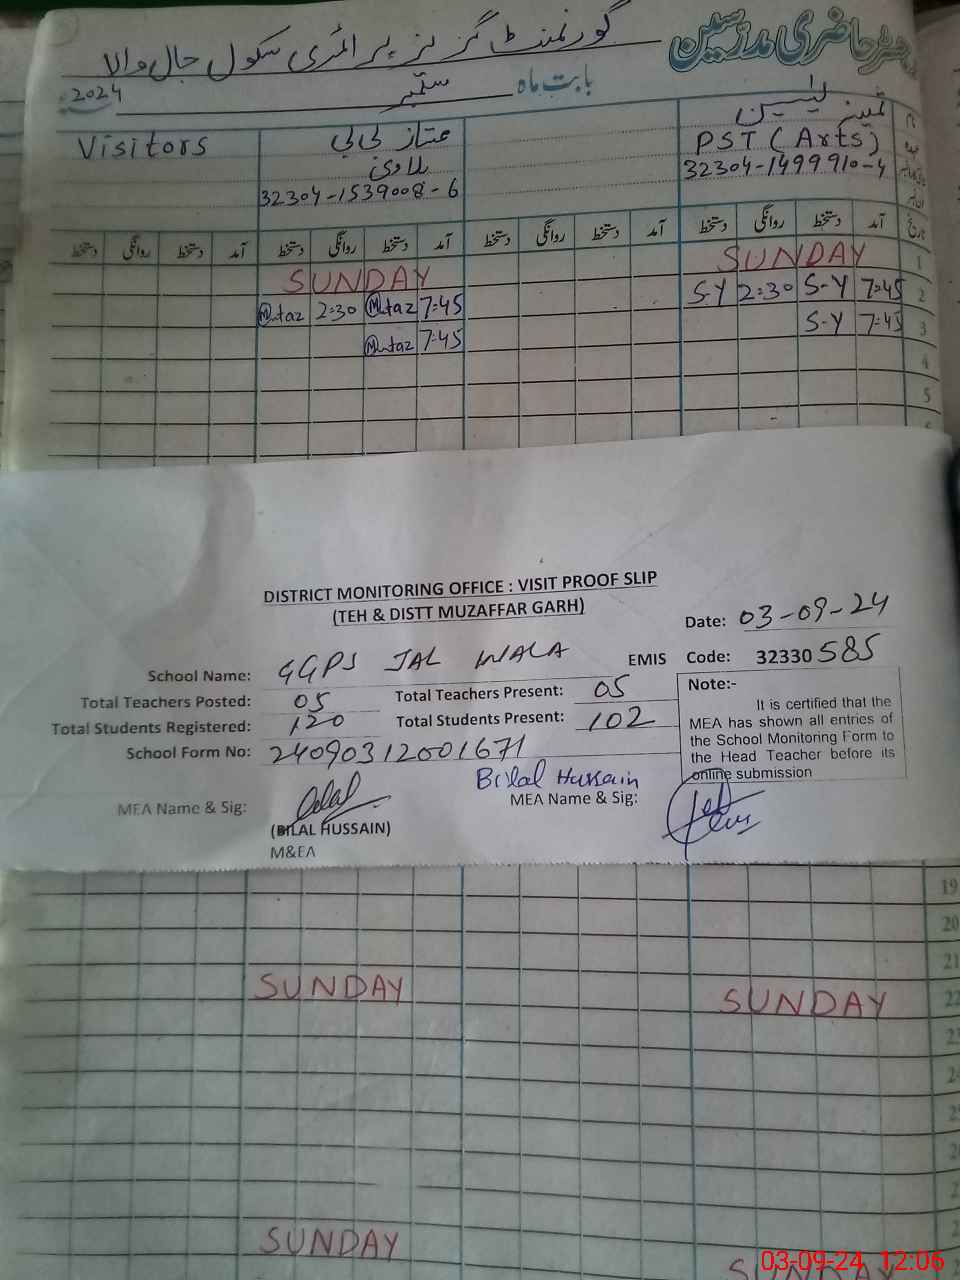 رجسٹر حاضری مدرسین
گورنمنٹ گرلز پرائمری سکول جال والا
بابت ماہ ستمبر 2024
ثمینہ یٰسین
PST (Arts)
32304-1499910-4
ممتاز بی بی
بلاوی
32304-1539008-6
Visitors
تاریخ آمد دستخط روانگی دستخط آمد دستخط روانگی دستخط آمد دستخط روانگی دستخط آمد دستخط روانگی دستخط
1 SUNDAY SUNDAY
2 7:45 S-Y 2:30 S-Y 7:45 Mutaz 2:30 Mutaz
3 7:45 S-Y 7:45 Mutaz
4
5
DISTRICT MONITORING OFFICE : VISIT PROOF SLIP
(TEH & DISTT MUZAFFAR GARH)
Date: 03-09-24
School Name: GGPS JAL WALA EMIS Code: 32330585
Total Teachers Posted: 05 Total Teachers Present: 05
Total Students Registered: 120 Total Students Present: 102
School Form No: 24090312001671
Note:-
It is certified that the
MEA has shown all entries of
the School Monitoring Form to
the Head Teacher before its
online submission
Bilal Hussain
MEA Name & Sig: MEA Name & Sig:
(BILAL HUSSAIN)
M&EA
19
20
21
22 SUNDAY SUNDAY
23
SUNDAY SUNDAY
03-09-24 12:06